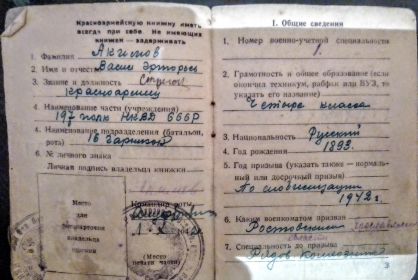 Красноармейскую книжку иметь
всегда при себе. Не имеющих
книжек — задерживать
1. Фамилия Акимов
2. Имя и отчество
3. Звание и должность Стрелок
красноармеец
4. Наименование части (учреждения)
197 полк НКВД СССР
4. Наименование подразделения (батальон,
рота) 16 гарнизон
6. № личного знака
Личная подпись владельца книжки
Место
для
фотокарточки
владельца
книжки
Командир роты
(Место
печати части)
I. Общие сведения
1. Номер военно-учетной специальности
1.
2. Грамотность и общее образование (если
окончил техникум, рабфак или ВУЗ, то
указать его название)
Четыре класса
3. Национальность Русский
4. Год рождения 1893.
5. Год призыва (указать также — нормаль-
ный или досрочный призыв)
По мобилизации
1942 г.
6. Каким военкоматом призван
Ростовским
7. Специальность до призыва
Рядов колхозник
3